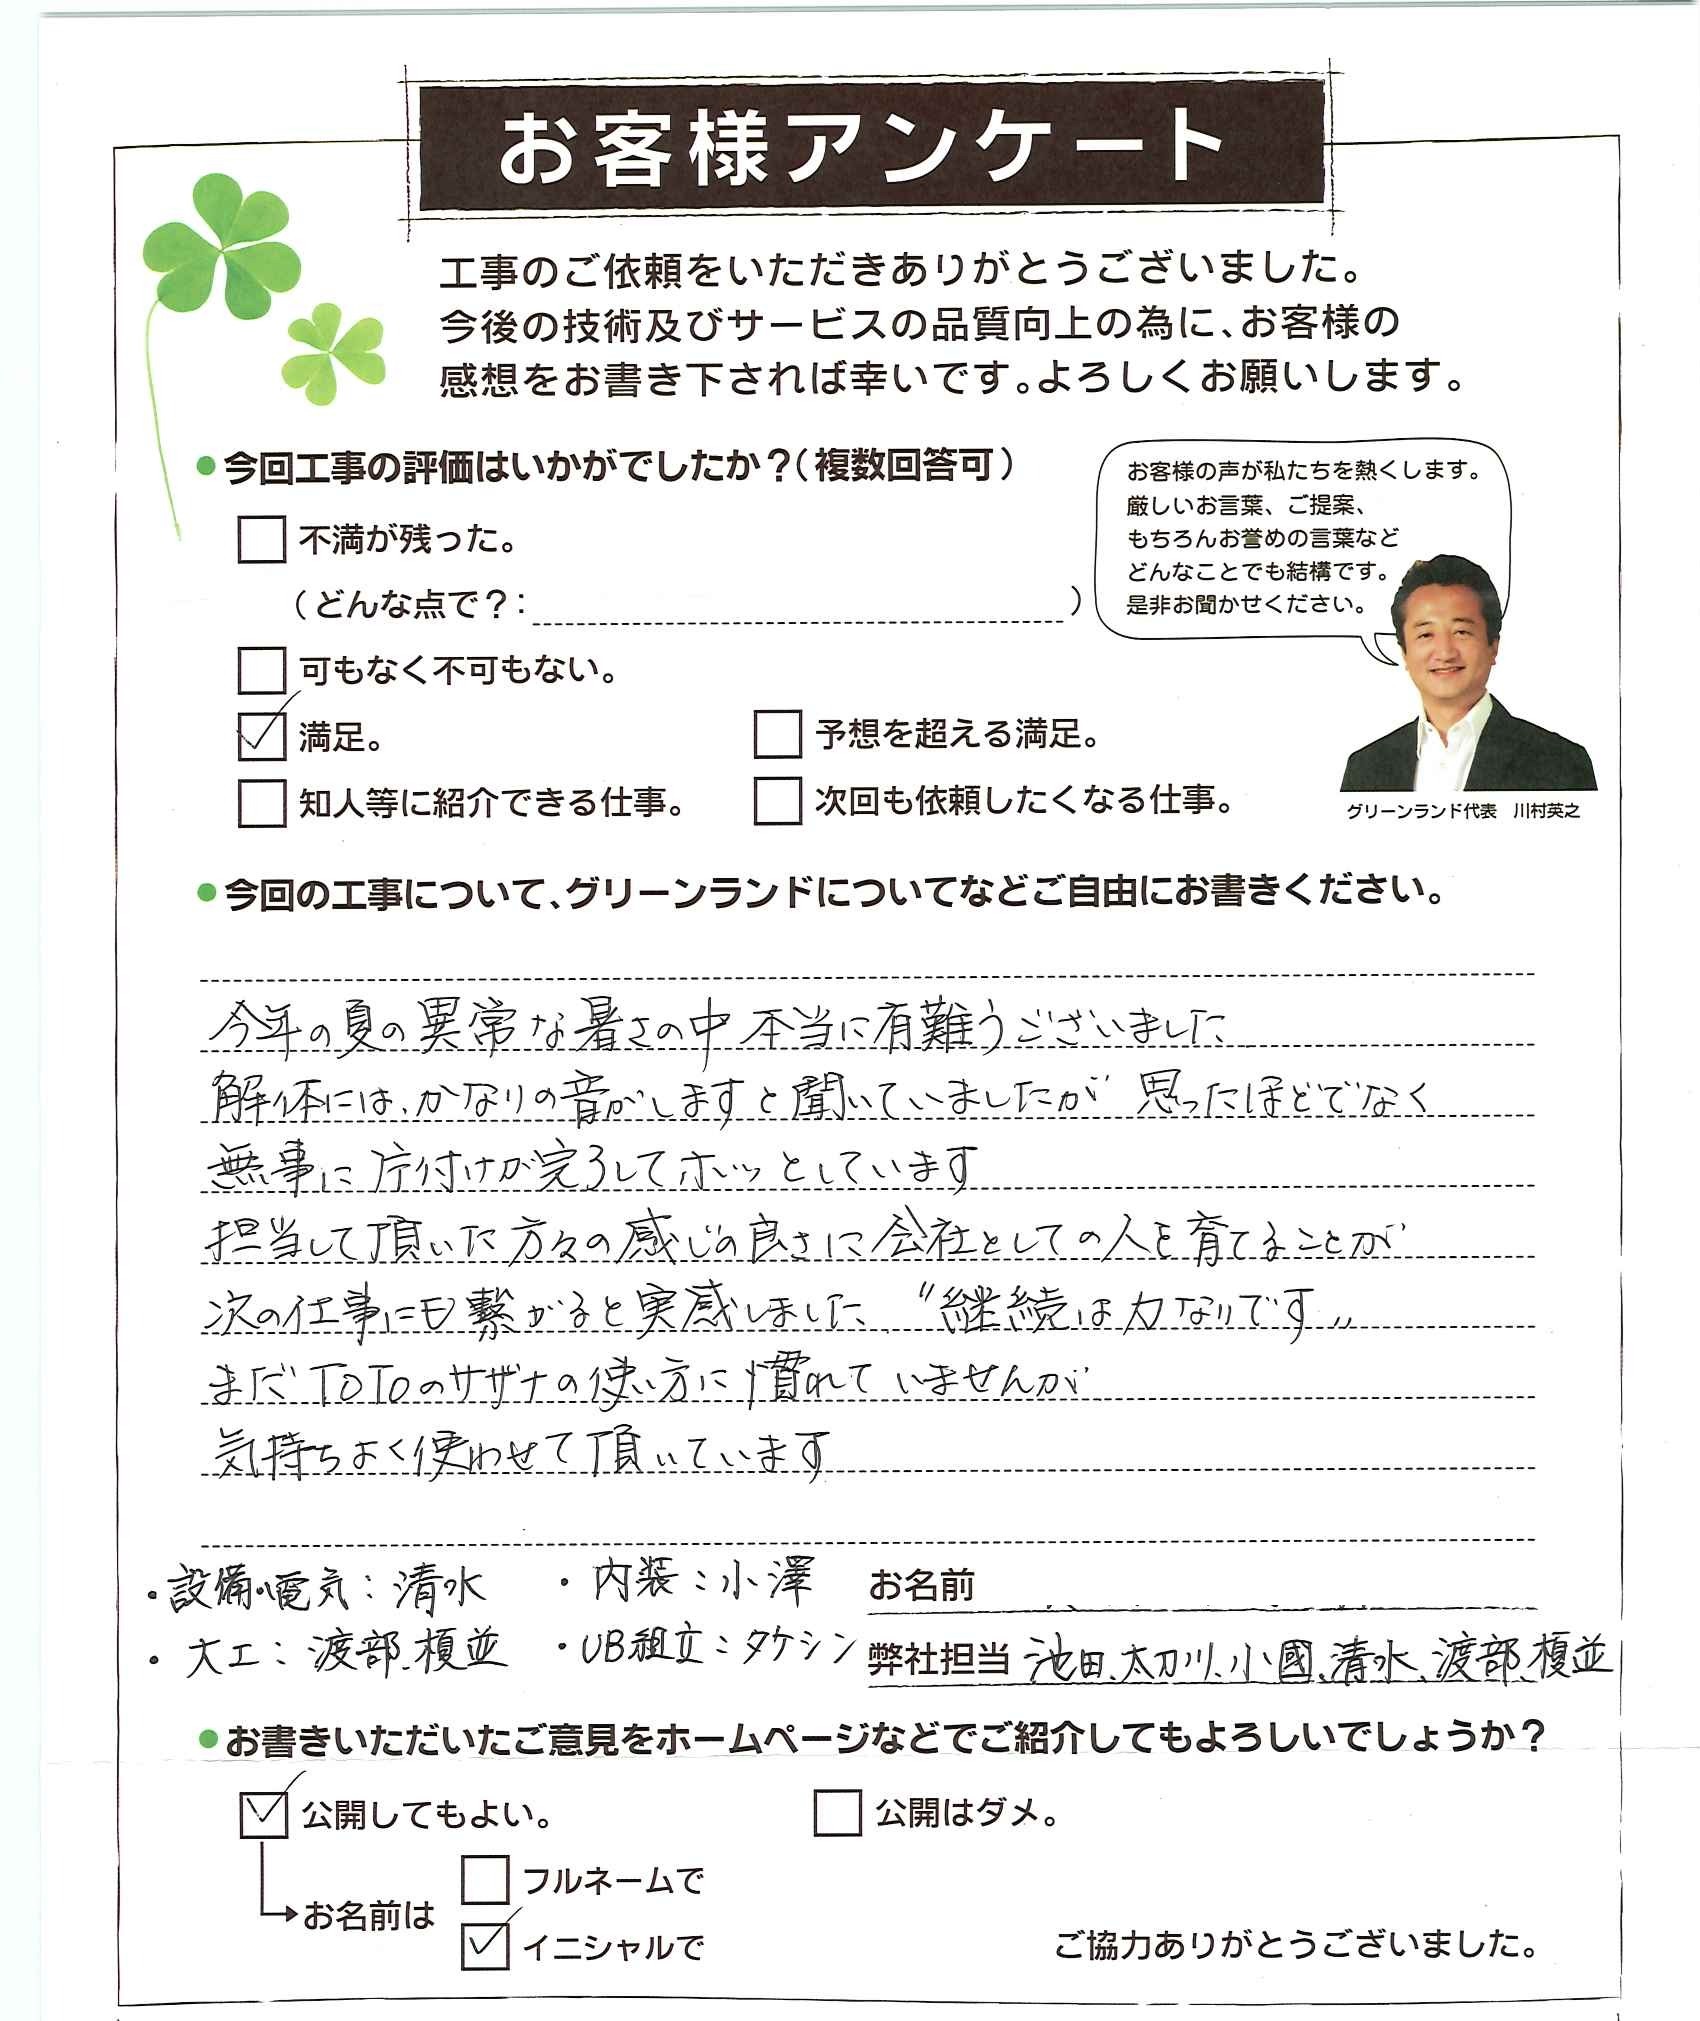 お客様アンケート
工事のご依頼をいただきありがとうございました。
今後の技術及びサービスの品質向上の為に、お客様の
感想をお書き下されば幸いです。よろしくお願いします。
●今回工事の評価はいかがでしたか?(複数回答可)
お客様の声が私たちを熱くします。
厳しいお言葉、ご提案、
もちろんお誉めの言葉など
どんなことでも結構です。
是非お聞かせください。
不満が残った。
(どんな点で?: )
可もなく不可もない。
満足。 予想を超える満足。
知人等に紹介できる仕事。 次回も依頼したくなる仕事。
グリーンランド代表 川村英之
●今回の工事について、グリーンランドについてなどご自由にお書きください。
今年の夏の異常な暑さの中本当に有難うございました
解体には、かなりの音がしますと聞いていましたが 思ったほどでなく
無事に片付けが完了してホッとしています
担当して頂いた方々の感じの良さに会社としての人を育てることが
次の仕事にも繋がると実感しました、〝継続は力なりです〟
まだTOTOのサザナの使い方に慣れていませんが
気持ちよく使わせて頂いています
・設備・電気：清水 ・内装：小澤 お名前
・大工：渡部、榎並 ・UB組立：タケシン 弊社担当 池田、太刀川、小國、清水、渡部、榎並
●お書きいただいたご意見をホームページなどでご紹介してもよろしいでしょうか?
公開してもよい。 公開はダメ。
お名前は フルネームで
イニシャルで
ご協力ありがとうございました。